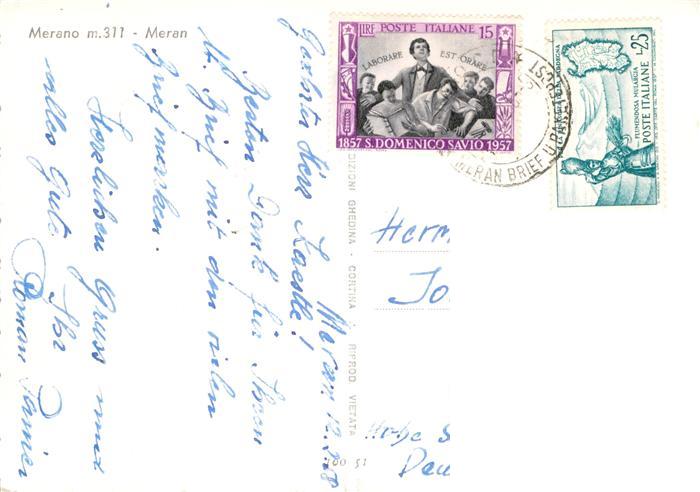 Merano m.311 - Meran
LIRE POSTE ITALIANE 15
LABORARE EST ORARE
1857 S. DOMENICO SAVIO 1957
L.25
SARDEGNA
FLUMENDOSA MULARGIA
POSTE ITALIANE
MERAN BRIEF U.
EDIZIONI GHEDINA - CORTINA - RIPROD. VIETATA
100 51
Meran, 12.
Geehrter Herr Kaestle!
Besten Dank für Ihren
Brief mit den vielen
Briefmarken.
Herzlichen Gruss und
alles Gute Ihr
Roman
Herm
Jo
Hohe S
Deu